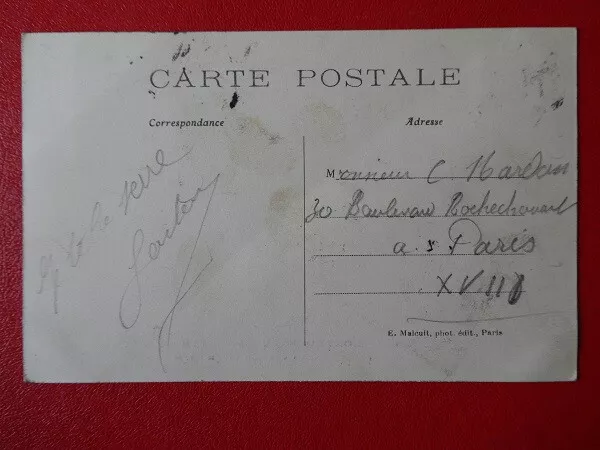 CARTE POSTALE
Correspondance
Adresse
Monsieur C. Mardon
30 Boulevard Rochechouart
a s Paris
XVIII
E. Malcuit, phot. édit., Paris